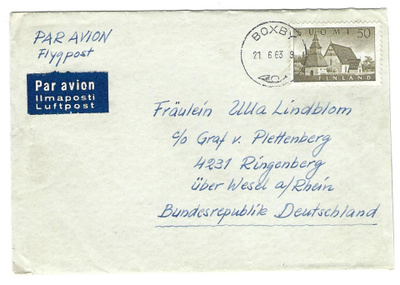 PAR AVION
Flygpost
Par avion
Ilmaposti
Luftpost
BOXBY
21.6.63 9
SUOMI 50
FINLAND
Fräulein Ulla Lindblom
c/o Graf v. Plettenberg
4231 Ringenberg
über Wesel a/Rhein
Bundesrepublik Deutschland